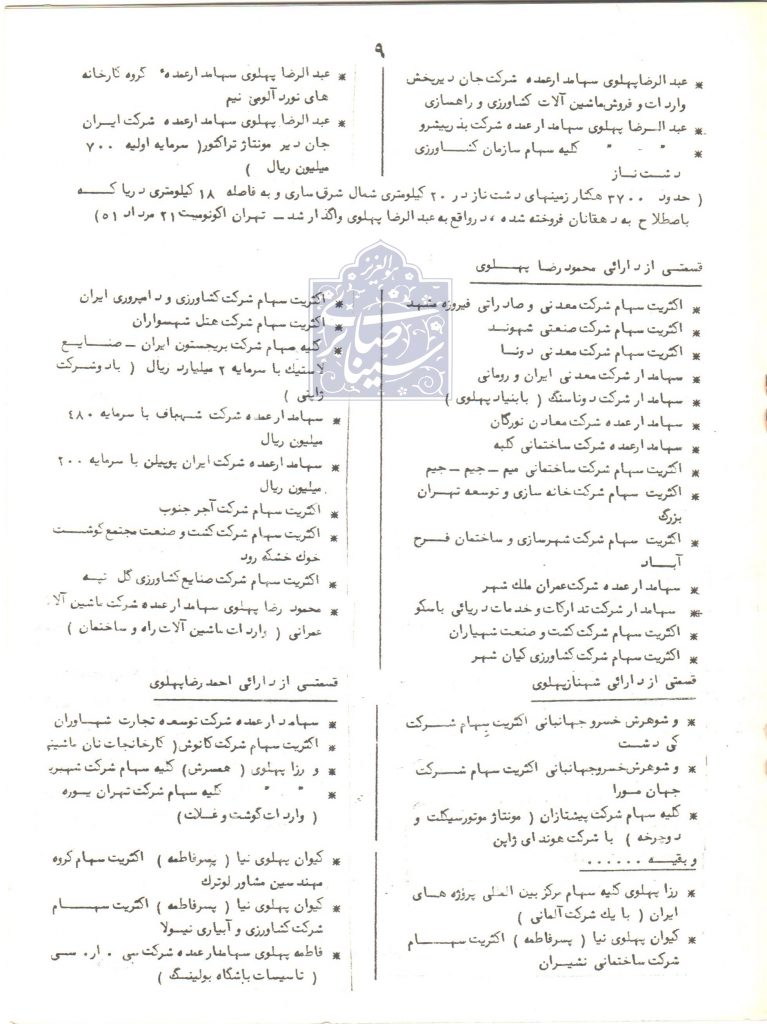 ۹
* عبدالرضا پهلوی سهامدار عمده شرکت جان دیر پخش
واردات و فروش ماشین آلات کشاورزی و راهسازی
* عبدالـرضا پهلوی سهامدار عمده شرکت بذر پیشرو
* " " کلیه سهام سازمان کشـاورزی
دشت نـاز
* عبدالرضا پهلوی سهامدار عمده گروه کارخانه
های نورد آلومی نیم
* عبدالرضا پهلوی سهامدار عمده شرکت ایـران
جان دیر مونتاژ تراکتور( سرمایه اولیه ۷۰۰
میلیون ریال )
( حدود ۳۷۰۰ هکتار زمینهای دشت ناز در ۲۰ کیلومتری شمال شرق ساری و به فاصله ۱۸ کیلومتری دریا کـه
باصطلاح به دهقانان فروخته شده ، در واقع به عبدالرضا پهلوی واگذار شد ـ تهران اکونومیست ۲۱ مرداد ۵۱)
قسمتـی از دارائی محمود رضا پهـلوی
* اکثریت سهام شرکت معدنی و صادراتی فیروزه مشهد
* اکثریت سهام شرکت صنعتی شهوند
* اکثریت سهام شرکت معدنی دونا
* سهامدار شرکت معدنی ایران و رومانی
* سهامدار شرکت دوناسنگ ( بابنیاد پهلوی )
* سهامدار عمده شرکت معادن نورگان
* سهامدار عمده شرکت ساختمانی کلبه
* اکثریت سهام شرکت ساختمانی میم ـ جیم ـ جیم
* اکثریت سهام شرکت خانه سازی و توسعه تهران
بزرگ
* اکثریت سهام شرکت شهرسازی و ساختمان فـرح
آبـاد
* سهامدار عمده شرکت عمران ملك شهر
* سهامدار شرکت تدارکات و خدمات دریائی باسکو
* اکثریت سهام شرکت کشت و صنعت شهیاران
* اکثریت سهام شرکت کشاورزی کیان شهر
* اکثریت سهام شرکت کشاورزی و دامپروری ایران
* اکثریت سهام شرکت هتل شهسواران
* کلیه سهام شرکت بریجستون ایران ـ صنـایـع
لاستیك با سرمایه ۲ میلیارد ریال ( با دو شرکت
ژاپنی )
* سهامدار عمده شرکت شهباف با سرمایه ۴۸۰
میلیون ریال
* سهامدار عمده شرکت ایران پوپیلن با سرمایه ۲۰۰
میلیون ریال
* اکثریت سهام شرکت آجر جنوب
* اکثریت سهام شرکت کشت و صنعت مجتمع گوشت
خوك خشکه رود
* اکثریت سهام شرکت صنایع کشاورزی گل تپـه
* محمود رضا پهلوی سهامدار عمده شرکت ماشین آلا
عمرانی ( واردات ماشین آلات راه و ساختمان )
قسمتی از دارائی شهناز پهلوی
* و شوهرش خسرو جهانبانی اکثریت سهام شـرکت
کی دشت
* و شوهرش خسرو جهانبانی اکثریت سهام شـرکت
جهان مـورا
* کلیه سهام شرکت پیشتازان ( مونتاژ موتورسیکلت و
دوچرخه ) با شرکت هوندای ژاپن
و بقیـه ......
* رزا پهلوی کلیه سهام مرکز بین المللی پروژه های
ایران ( با یك شرکت آلمانی )
* کیوان پهلوی نیا ( پسر فاطمه ) اکثریت سهـام
شرکت ساختمانی نشیـران
قسمتـی از دارائی احمد رضا پهلوی
* سهامدار عمده شرکت توسعه تجارت شهـاوران
* اکثریت سهام شرکت کانوش( کارخانجات نان ماشینی
* و رزا پهلوی ( همسرش) کلیه سهام شرکت شهبر
* " " کلیه سهام شرکت تهران بـوره
( واردات گوشت و غـلات)
* کیوان پهلوی نیا ( پسر فاطمه ) اکثریت سهام گروه
مهندسین مشاور لوترك
* کیوان پهلوی نیا ( پسر فاطمه ) اکثریت سهـام
شرکت کشاورزی و آبیاری نیـولا
* فاطمه پهلوی سهامدار عمده شرکت سی . ار. سی
( تاسیسات باشگاه بولینـگ )
سینا صابری